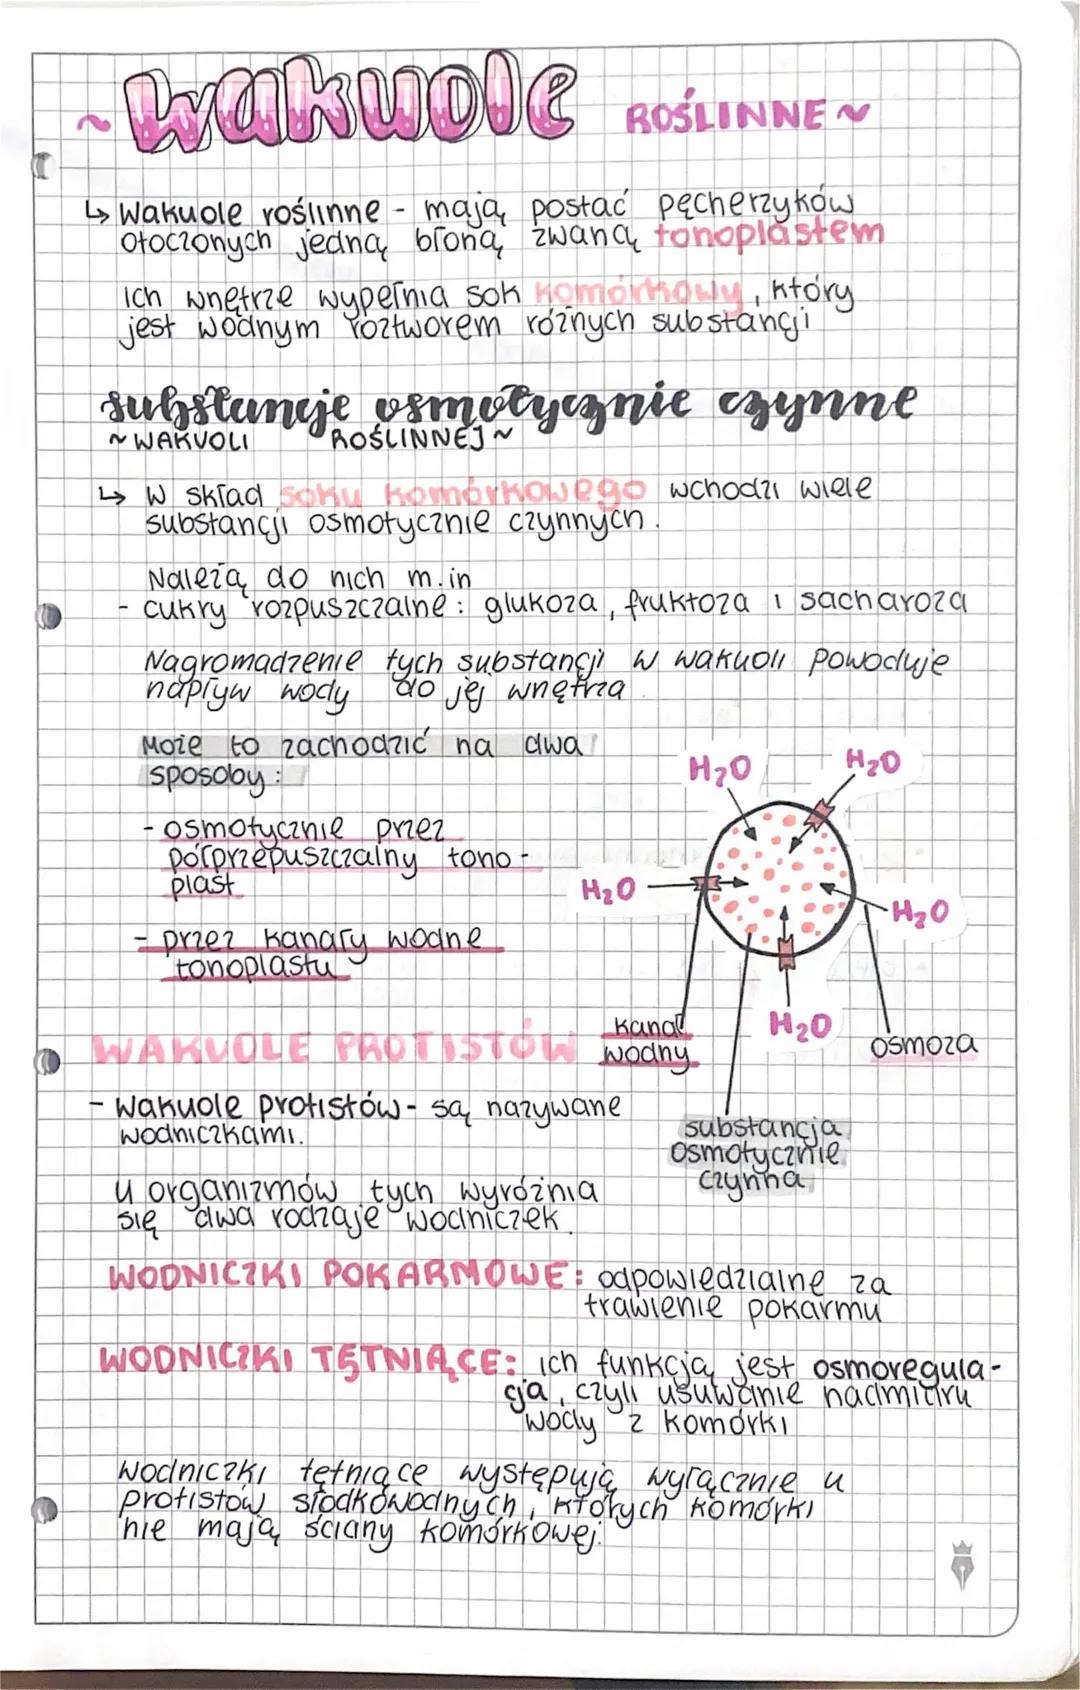 ~ wakuole ROŚLINNE ~
↳ Wakuole roślinne - mają postać pęcherzyków
otoczonych jedną błoną zwaną tonoplastem
Ich wnętrze wypełnia sok komórkowy, który
jest wodnym roztworem różnych substancji
substancje osmotycznie czynne
~ WAKUOLI ROŚLINNEJ ~
↳ W skład soku komórkowego wchodzi wiele
substancji osmotycznie czynnych.
Należą do nich m.in
- cukry rozpuszczalne: glukoza, fruktoza i sacharoza
Nagromadzenie tych substancji w wakuoli powoduje
napływ wody do jej wnętrza.
Może to zachodzić na dwa
sposoby:
- osmotycznie przez
półprzepuszczalny tono-
plast
- przez kanały wodne
tonoplastu
H₂O
H₂O
H₂O
H₂O
H₂O
kanał
wodny
osmoza
substancja
osmotycznie
czynna
WAKUOLE PROTISTÓW
- Wakuole protistów - są nazywane
wodniczkami.
u organizmów tych wyróżnia
się dwa rodzaje wodniczek.
WODNICZKI POKARMOWE: odpowiedzialne za
trawienie pokarmu
WODNICZKI TĘTNIĄCE: ich funkcją jest osmoregula-
cja, czyli usuwanie nadmiaru
wody z komórki
Wodniczki tętniące występują wyłącznie u
protistów słodkowodnych, których komórki
nie mają ściany komórkowej.